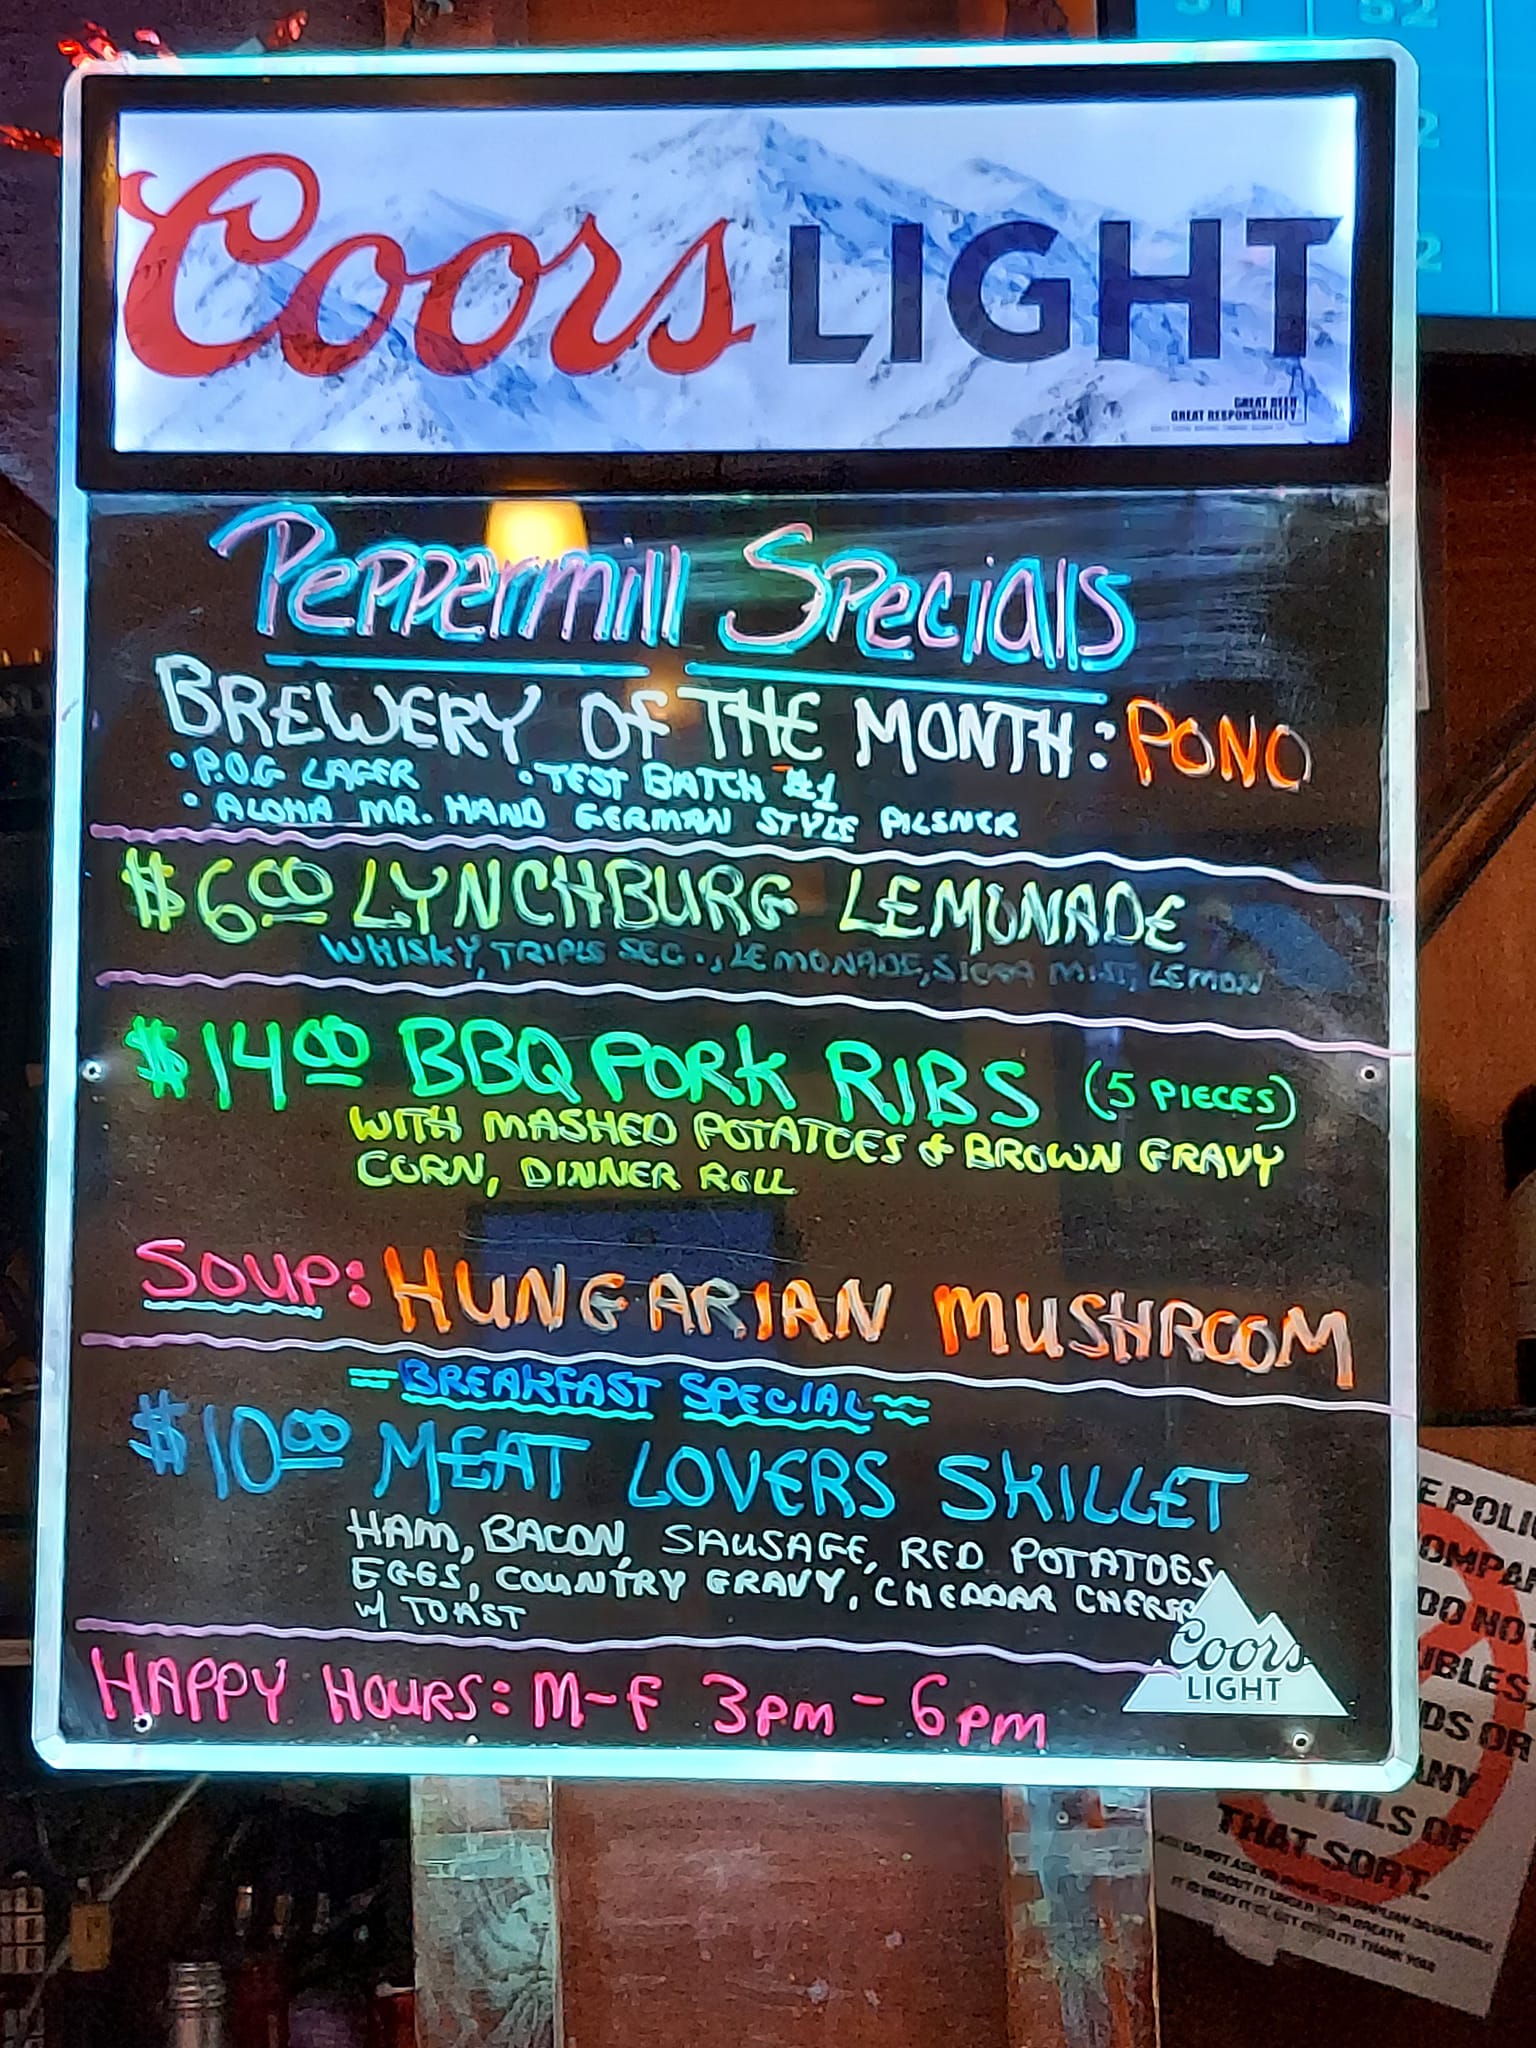 Coors LIGHT
GREAT BEER
GREAT RESPONSIBILITY
Peppermill Specials
BREWERY OF THE MONTH: PONO
• P.O.G LAGER • TEST BATCH #1
• ALOHA MR. HAND GERMAN STYLE PILSNER
$6.00 LYNCHBURG LEMONADE
WHISKY, TRIPLE SEC., LEMONADE, SIERRA MIST, LEMON
$14.00 BBQ PORK RIBS (5 PIECES)
WITH MASHED POTATOES & BROWN GRAVY
CORN, DINNER ROLL
SOUP: HUNGARIAN MUSHROOM
=BREAKFAST SPECIAL=
$10.00 MEAT LOVERS SKILLET
HAM, BACON, SAUSAGE, RED POTATOES,
EGGS, COUNTRY GRAVY, CHEDDAR CHEESE
W/ TOAST
HAPPY HOURS: M-F 3pm - 6pm
Coors
LIGHT
DO NOT
ANY
OF
THAT SORT.